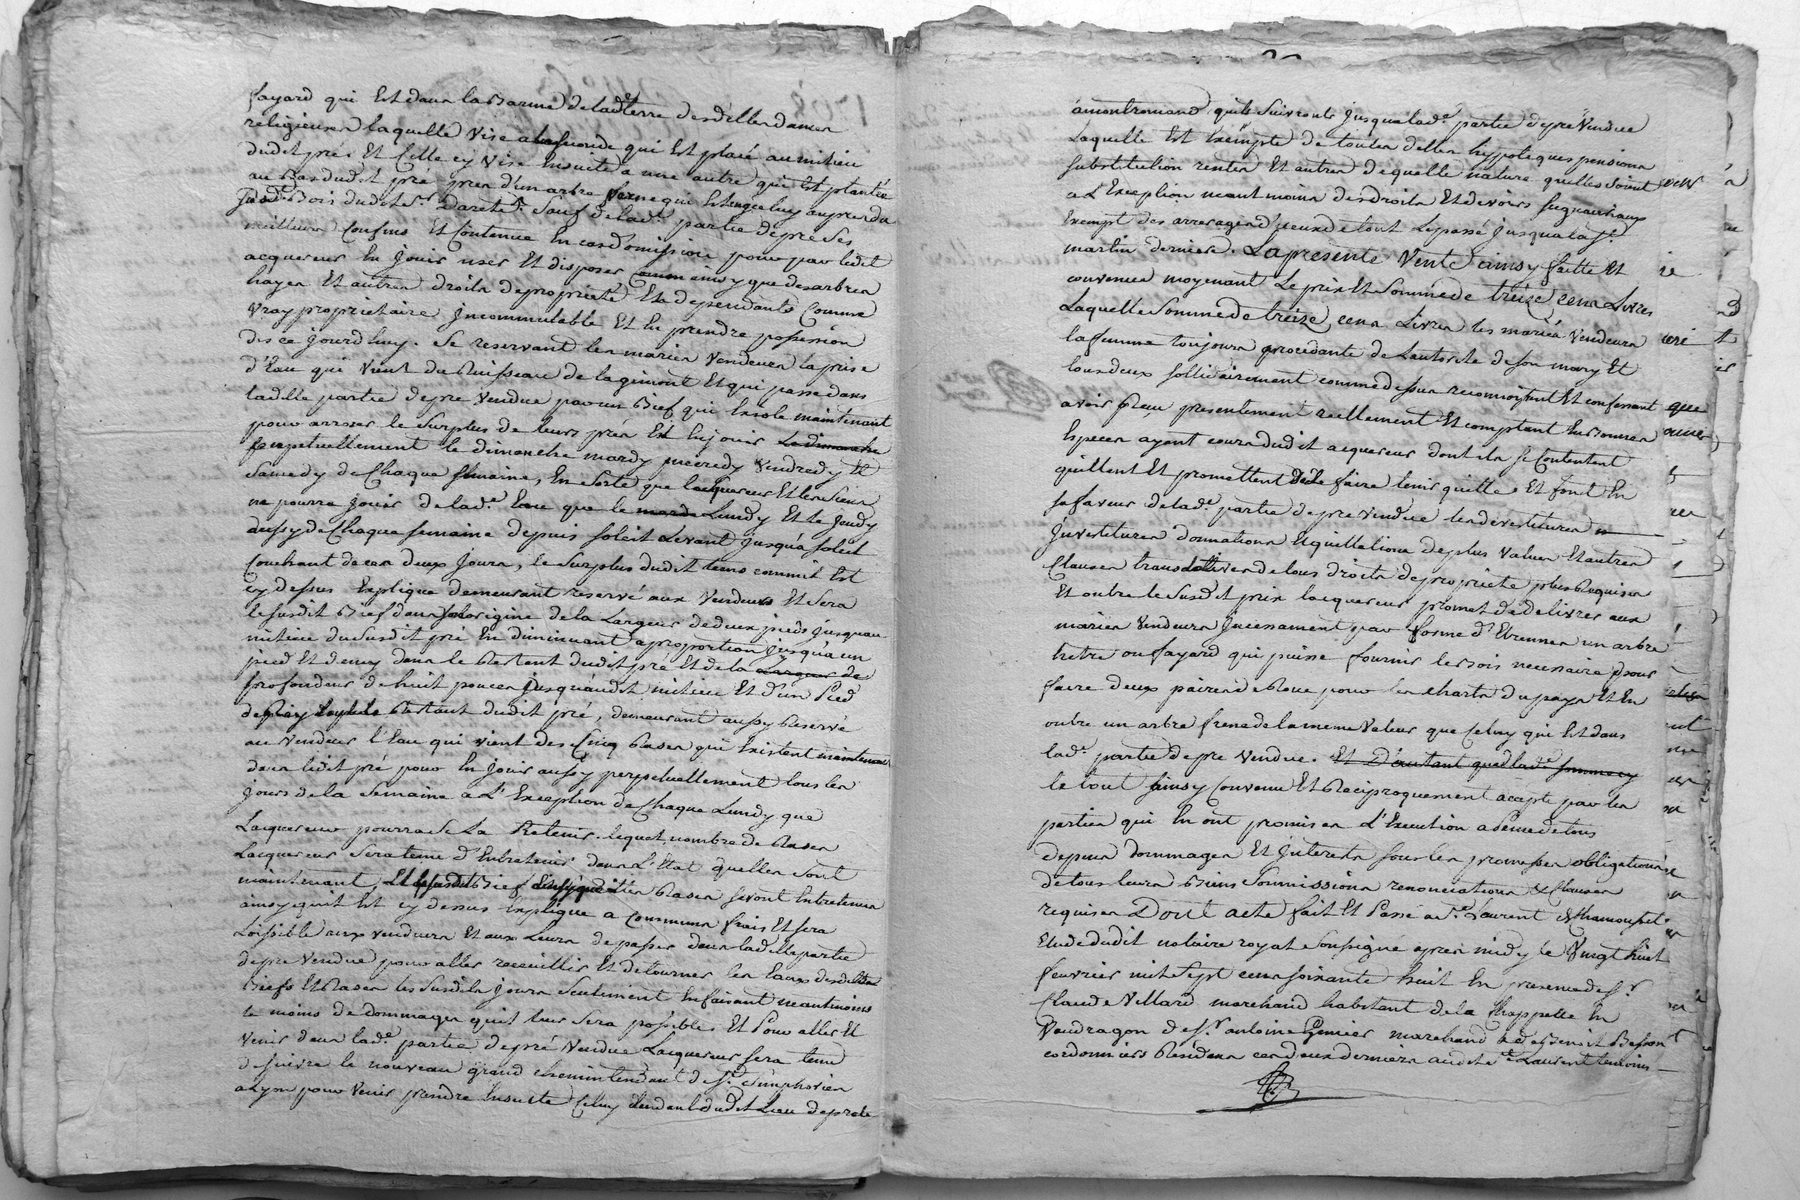 fayard qui Est dans la Barme de lade terre desdittes dames
religieuses laquelle vise a la seconde qui Est placé au milieu
dudit pré. Et Celle cy vise Ensuitte a une autre qui Est plantée
au Bas dudit pré pres d'un arbre verne qui Est auprès du
Bois dudit Sr Sauf de lade partie de pré Ses
meilleurs Confins Et Contenue En cas domission pour par ledit
acquereur En Jouir user Et disposer ainsy que des arbres
hayes Et autres droits de proprieté Et dependants Comme
vray proprietaire Jncommutable Et En prendre possession
des ce Jourdhuy. Se reservant les mariés Vendeurs la prise
d'Eau qui vient du Ruisseau de la gimont Et qui passe dans
laditte partie de pré Vendue par un Bief qui Existe maintenant
pour arroser le Surplus de leurs prés Et En Jouir
perpetuellement le dimanche mardy mecredy Vendredy Et
Samedy de Chaque Semaine, En Sorte que lacquereur Et les Siens
ne pourra Jouir de lade Eau que le Lundy Et le Jeudy
aussy de Chaque Semaine depuis Soleil Levant Jusqu'a Soleil
Couchant de ces deux Jours, le Surplus dudit tems comme il Est
cy dessus Expliqué demeurant reservé aux Vendeurs Et Sera
le susdit Bief dans Son origine de la Largeur de deux pieds Jusquau
milieu du Susdit pré En diminuant a proportion Jusqu'a un
pied Et demy dans le Restant dudit pré Et de la Largeur de
profondeur de huit pouces Jusqu'audit milieu Et d'un Pied
Restant dudit pré, demeurant aussy Reservé
au Vendeur l'Eau qui vient des Cinq Rases qui Existent maintenant
dans ledit pré pour En Jouir aussy perpetuellement tous les
Jours de la Semaine a L'Exception de Chaque Lundy que
Lacquereur pourra se La Retenir. lequel nombre de Rases
Lacquereur Sera tenu d'Entretenir dans L'Etat quelles Sont
maintenant, Et le Susdit Bief Rases Seront Entretenus
ainsy quil Est cy dessus Expliqué a Communs frais Et Sera
Loisible aux vendeurs Et aux Leurs de passer dans laditte partie
de pré Vendue pour aller recueillir Et detourner les Eaux desdits
Biefs Et Rases les Susdits Jours Seulement En faisant neantmoins
le moins de dommages quil leur Sera possible. Et Pour aller Et
Venir dans lade partie de pré Vendue Lacquereur Sera tenu
de Suivre le nouveau grand Chemin tendant de St Simphorien
a Lyon pour Venir prendre Ensuitte Celuy tendant dudit Lieu de
a montromand quils Suivronts Jusqu'a lade partie de pré Vendue
Laquelle Est Exempte de toutes dettes hyppoteques pensions
Substitution rentes Et autres de quelle nature quelles Soient
a L'Exception neantmoins des droits Et devoirs Seigneuriaux
Exempt des arrerages d'iceux de tout le passé Jusqu'a la St
martin derniere. La presente Vente ainsy faitte Et
convenue moyenant Le prix Et Somme de treize cens Livres
Laquelle Somme de treize cens Livres les mariés Vendeurs
la femme toujours procedante de L'autorité de Son mary Et
tous deux Sollidairement comme dessus reconnoissent Et confessent
avoir Reçu presentement reellement Et comptant En Bonnes
Especes ayant cours dudit acquereur dont ils Se Contentent
quittent Et promettent de le faire tenir quitte Et font En
Sa faveur de lade partie de pré vendue les devestitures
Jnvestitures donnations Et quittations de plus Values Et autres
Clauses translatives de tous droits de proprieté plus Requises
Et outre le Susdit prix lacquereur promet de delivrer aux
mariés Vendeurs Jncessament par forme d'Etrennes un arbre
hetre ou fayard qui puisse fournir le Bois necessaire pour
faire deux paires de Roue pour les Charts du pays Et En
outre un arbre frene de la meme Valeur que Celuy qui Est dans
lade partie de pré Vendue. Et D'autant que
le tout ainsy Convenu Et Reciproquement accepté par les
parties qui En ont promis L'Execution a Peine de tous
depens dommages Et Jnterests Sous les promesses obligations
de tous leurs Biens Soumissions renonciations & Clauses
requises Dont acte fait Et Passé a St Laurent de Chamousset
Etude dudit notaire royal Soussigné après midy le Vingt huit
fevrier mil Sept cens Soixante huit En presence de Sr
Claude Villard marchand habitant de la Chappelle En
Vaudragon de Sr antoine marchand Et de Benoit Besson
cordonniers Residens ces deux derniers audit St Laurent temoins